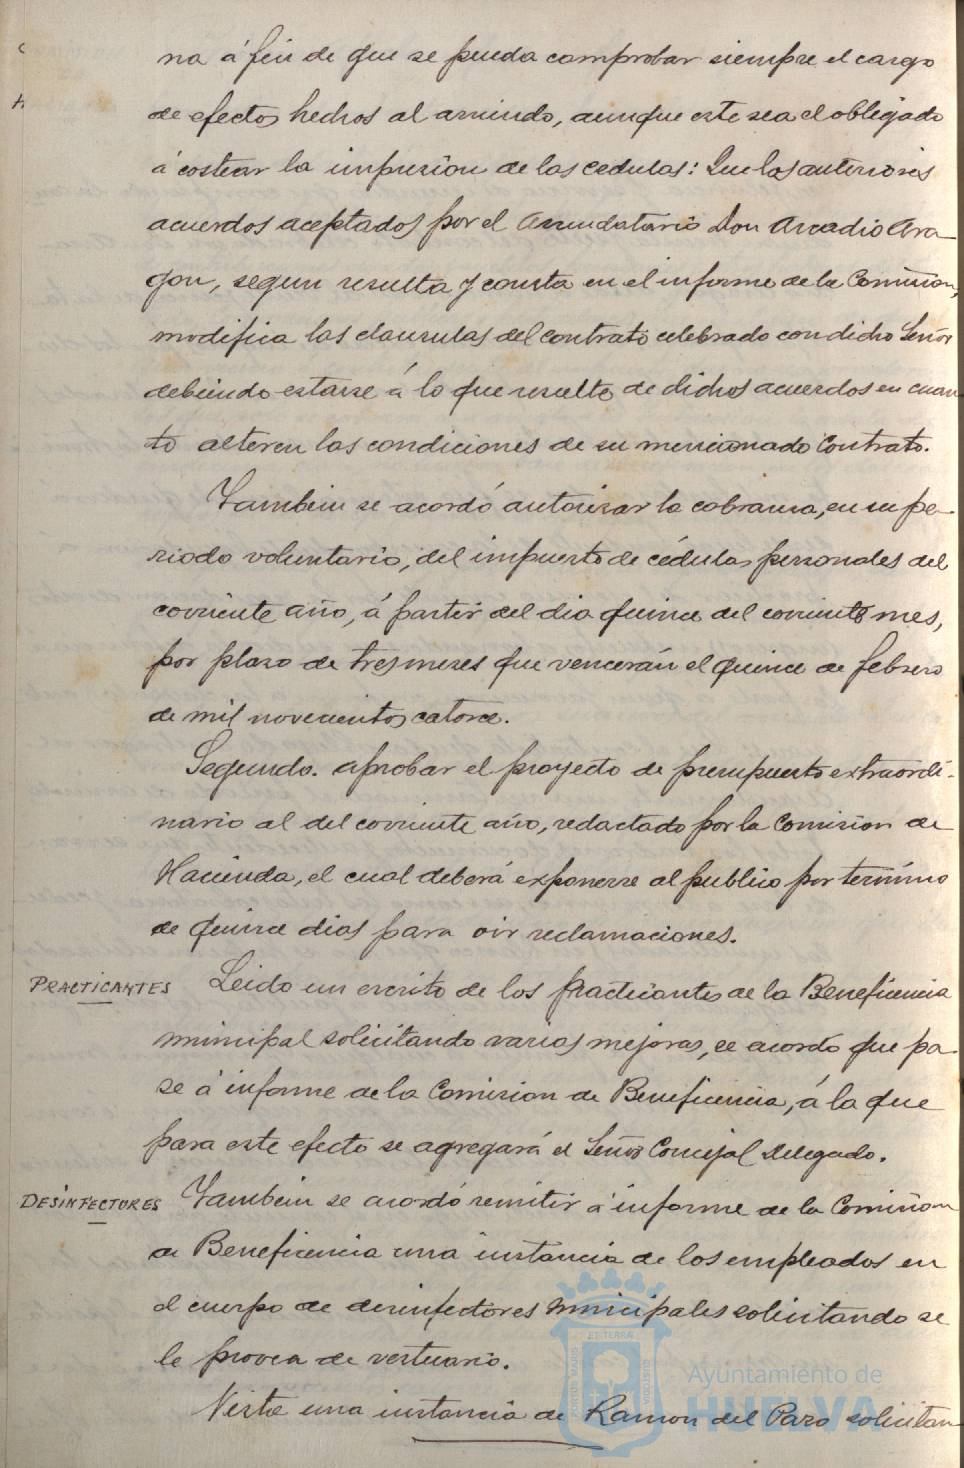 na á fin de que se pueda comprobar siempre el cargo
de efectos hechos al arriendo, aunque este sea el obligado
á costear la impresion de las cedulas: Que los anteriores
acuerdos aceptados por el Arrendatario Don Arcadio Ara-
gon, segun resulta y consta en el informe de la Comision,
modifica las clausulas del contrato celebrado con dicho Señor
debiendo estarse á lo que resulte de dichos acuerdos en cuan
to alteren las condiciones de su mencionado Contrato.
Tambien se acordó autorizar la cobranza, en su pe-
riodo voluntario, del impuesto de cédulas personales del
corriente año, á partir del dia quince del corriente mes,
por plazo de tres meses que vencerán el quince de febrero
de mil novecientos catorce.
Segundo. aprobar el proyecto de presupuesto extraordi-
nario al del corriente año, redactado por la Comision de
Hacienda, el cual deberá exponerse al publico por termino
de quince dias para oir reclamaciones.
PRACTICANTES Leido un escrito de los practicantes de la Beneficencia
municipal solicitando varias mejoras, se acordó que pa-
se á informe de la Comision de Beneficencia, á la que
para este efecto se agregará el Señor Concejal Delegado.
DESINFECTORES Tambien se acordó remitir á informe de la Comision
de Beneficencia una instancia de los empleados en
el cuerpo de desinfectores municipales solicitando se
le provea de vestuario.
Vista una instancia de Ramon del Pazo solicitan
Ayuntamiento de
HUELVA